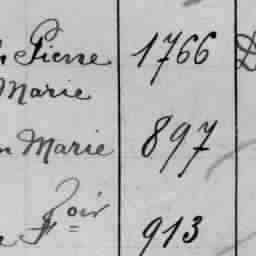 Pierre 1766
Marie
Marie 897
913